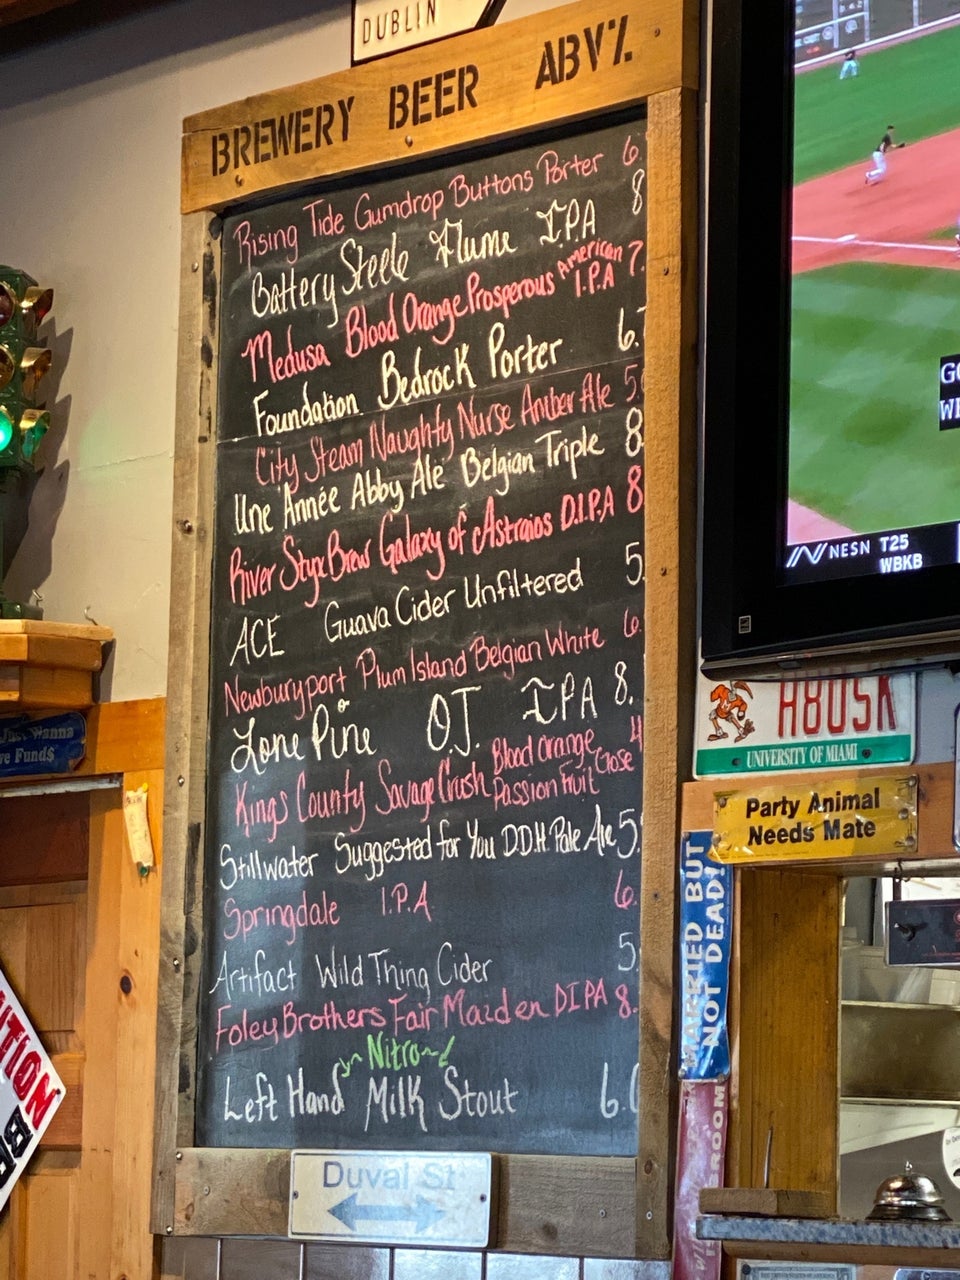 DUBLIN
BREWERY BEER ABV%
Rising Tide Gumdrop Buttons Porter 6.
Battery Steele Flume I.P.A 8
Medusa Blood Orange Prosperous American I.P.A 7.
Foundation Bedrock Porter 6.
City Steam Naughty Nurse Amber Ale 5.
Une Année Abby Ale Belgian Triple 8
River Styx Brew Galaxy of Astraios D.I.P.A 8
ACE Guava Cider Unfiltered 5.
Newburyport Plum Island Belgian White 6.
Lone Pine OJ. IPA 8.
Kings County Savage Crush Blood Orange, Passion Fruit Gose 4
Stillwater Suggested for You D.D.H. Pale Ale 5.
Springdale I.P.A 6.
Artifact Wild Thing Cider 5.
Foley Brothers Fair Maiden DIPA 8.
~Nitro~
Left Hand Milk Stout 6.0
Duval St
NESN T25
WBKB
GO
UNIVERSITY OF MIAMI
Party Animal
Needs Mate
MARRIED BUT
NOT DEAD!
Just Wanna
ve Fund$